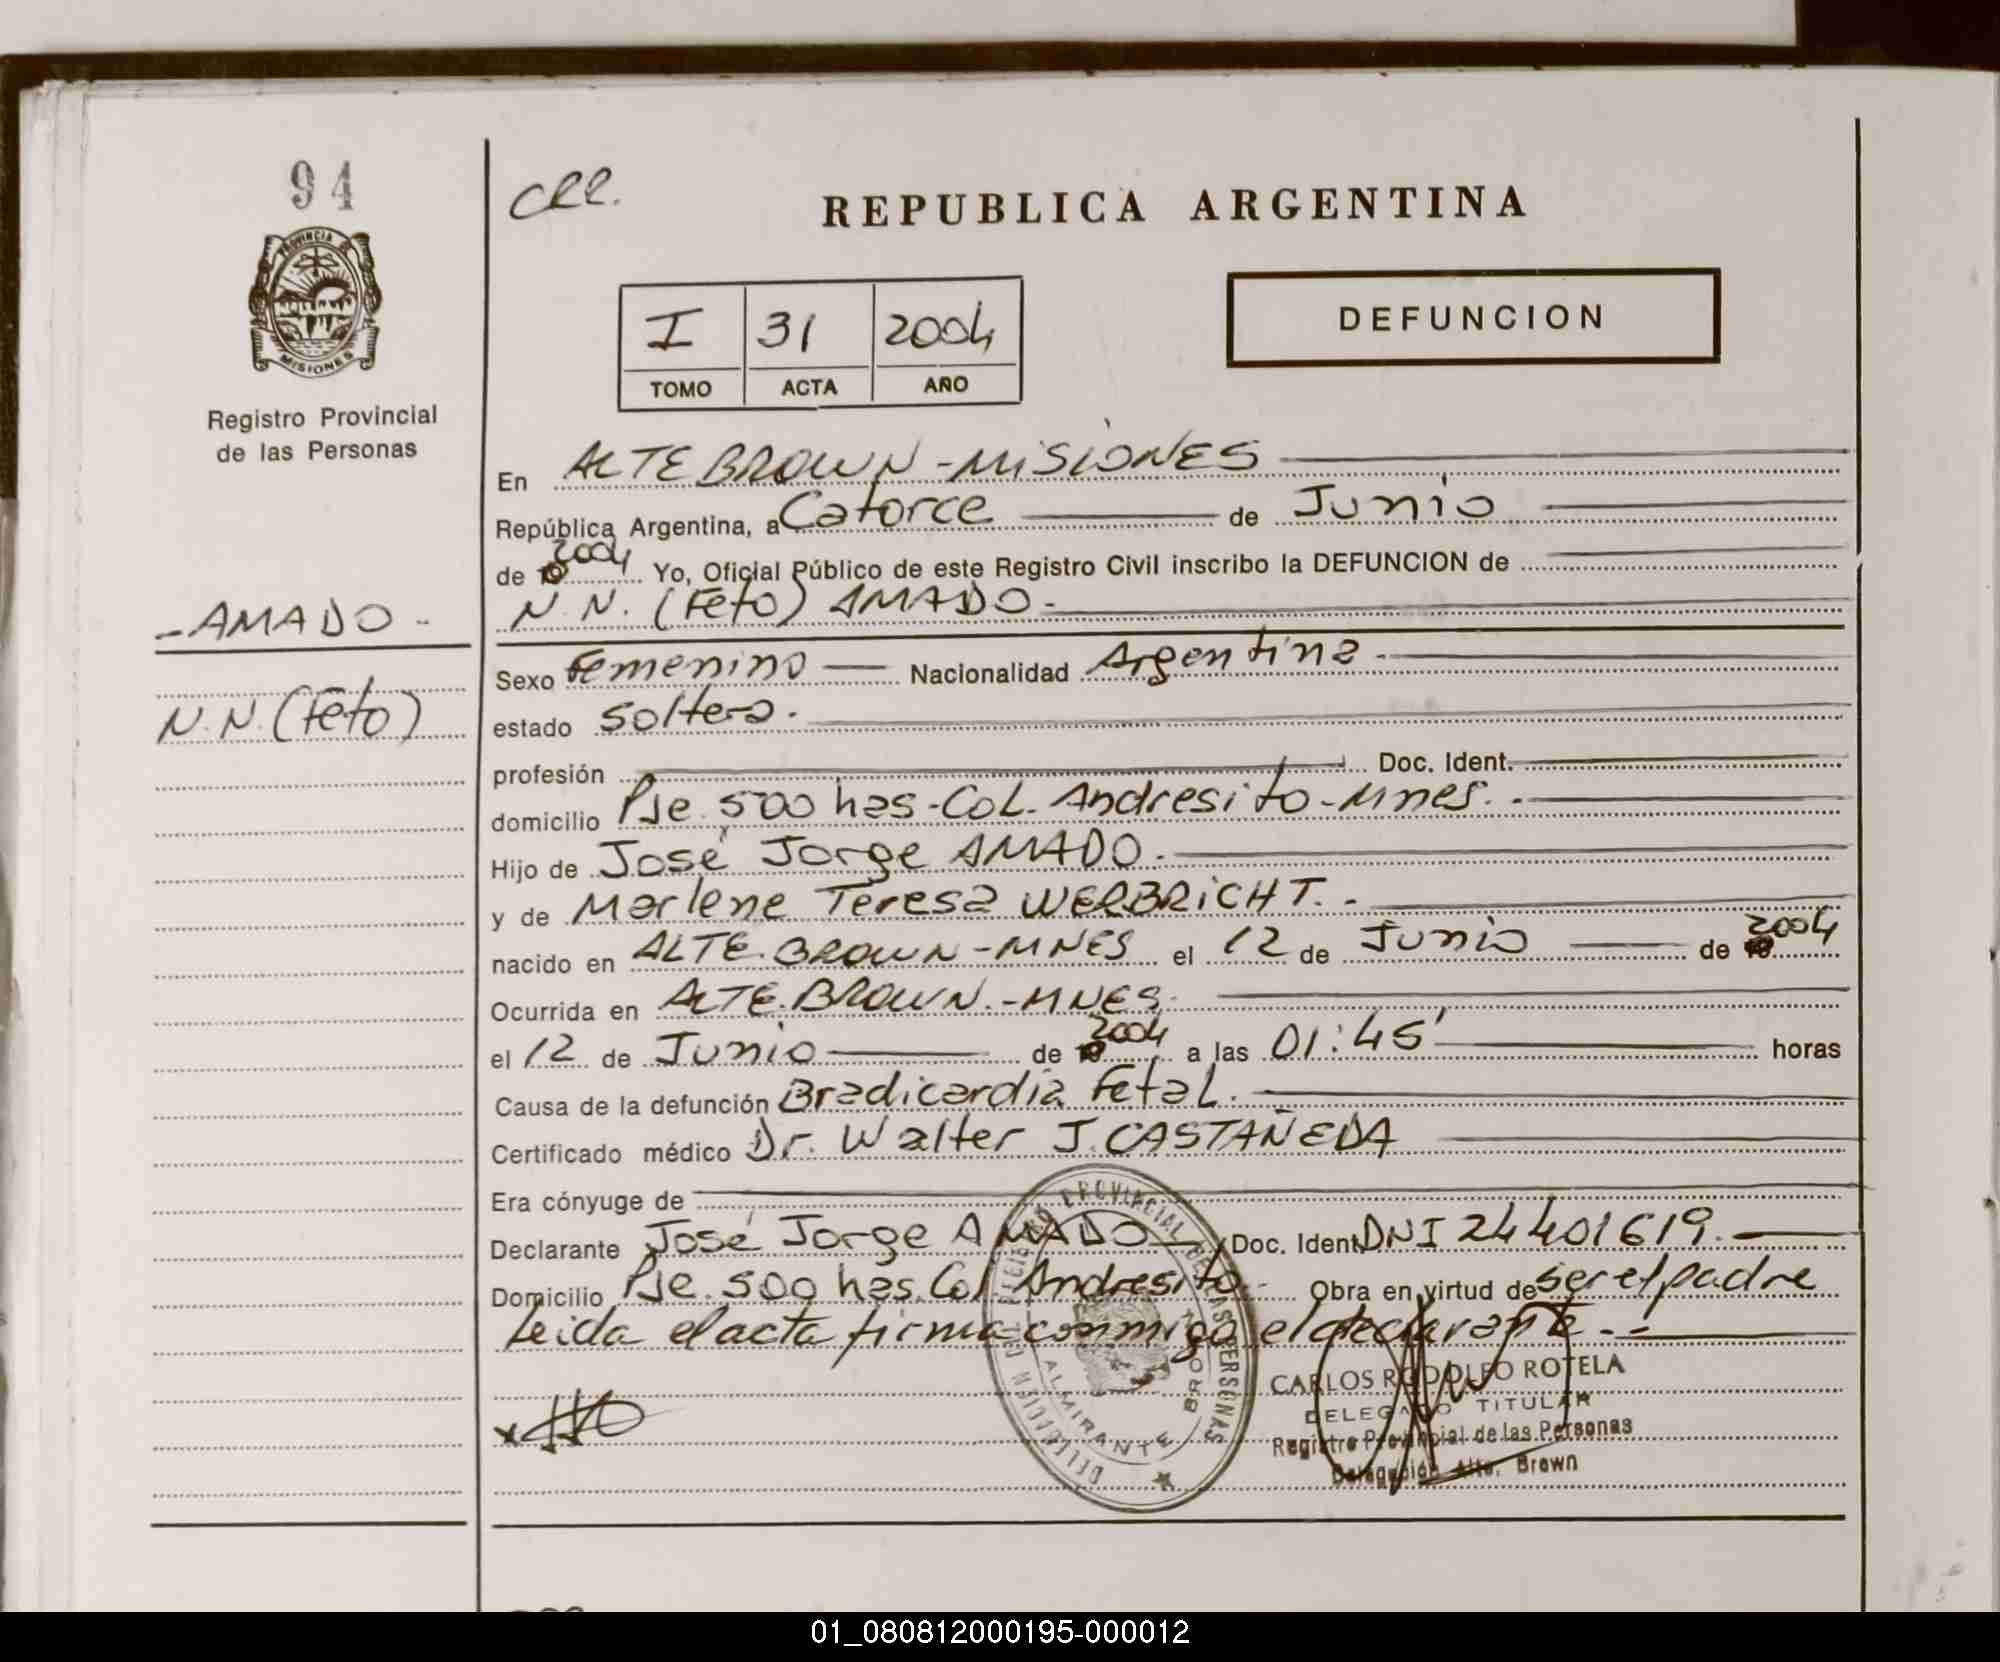 94
PROVINCIA DE
MISIONES
Registro Provincial
de las Personas
- AMADO -
N.N. (Feto)
REPUBLICA ARGENTINA
I 31 2004
TOMO ACTA AÑO
DEFUNCION
En ALTE BROWN - MISIONES
República Argentina, a Catorce de Junio
de 2004 Yo, Oficial Público de este Registro Civil inscribo la DEFUNCION de
N.N. (Feto) AMADO.-
Sexo Femenino Nacionalidad Argentina.-
estado soltera.
profesión Doc. Ident.
domicilio Pje. 500 has - Col. Andresito - Mnes. -
Hijo de José Jorge AMADO.
y de Marlene Teresa WERBRICHT. -
nacido en ALTE. BROWN - MNES el 12 de Junio de 2004
Ocurrida en ALTE. BROWN. - MNES.
el 12 de Junio de 2004 a las 01:45' horas
Causa de la defunción Bradicardia Fetal.
Certificado médico Dr. Walter J. CASTAÑEDA
Era cónyuge de
Declarante José Jorge AMADO Doc. Ident. DNI 24401619.
Domicilio Pje. 500 has. Col. Andresito Obra en virtud de ser el padre
Leida el acta firma conmigo el declarante. -
CARLOS RODOLFO ROTELA
DELEGADO TITULAR
Registro Provincial de las Personas
Delegación Alte. Brown
REGISTRO PROVINCIAL DE LAS PERSONAS
ALMIRANTE BROWN
01_080812000195-000012